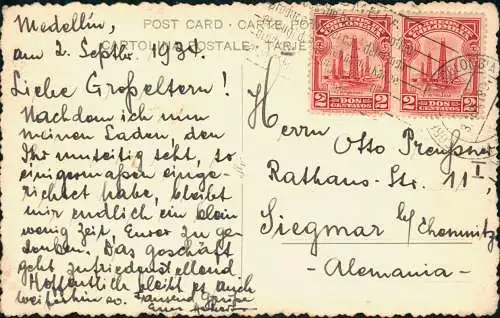 POST CARD · CARTE PO
CARTOLINA POSTALE · TARJE
Medellín,
am 2. Septbr. 1934.
Liebe Großeltern!
Nachdem ich nun
meinen Laden, den
Ihr umseitig seht, so
einigermaßen einge-
richtet habe, bleibt
mir endlich ein klein
wenig Zeit, Eurer zu ge-
denken. Das Geschäft
geht zufriedenstellend
Hoffentlich bleibt es auch
weiterhin so. Tausend Grüße
Euer
2 DOS CENTAVOS 2
2 DOS CENTAVOS 2
Herrn
Otto Preußner
Rathaus-Str. 11 I,
Siegmar b/ Chemnitz
- Alemania -